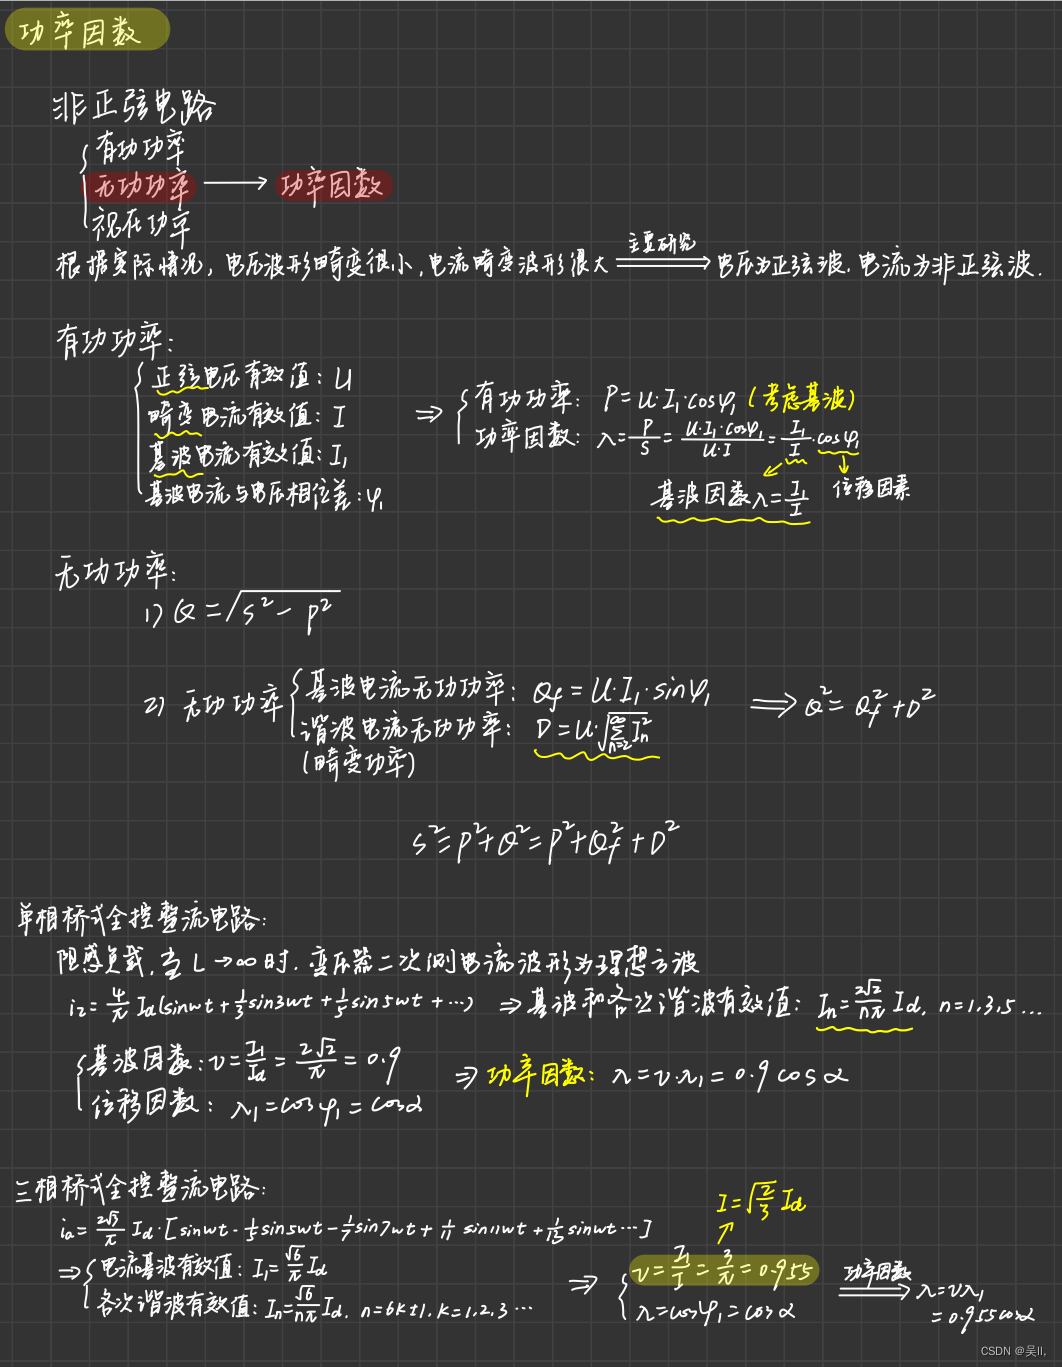 功率因数
非正弦电路
有功功率
无功功率 → 功率因数
视在功率
根据实际情况, 电压波形畸变很小, 电流畸变波形很大 ⇒ 主要研究 电压为正弦波. 电流为非正弦波.
有功功率:
正弦电压有效值: U
畸变电流有效值: I
基波电流有效值: I₁
基波电流与电压相位差: φ₁
⇒ 有功功率: P=U·I₁·cosφ₁ (考虑基波)
功率因数: λ=P/S=U·I₁·cosφ₁/U·I=I₁/I·cosφ₁
基波因数λ=I₁/I 位移因素
无功功率:
1) Q=√(S²-P²)
2) 无功功率
基波电流无功功率: Qf=U·I₁·sinφ₁
谐波电流无功功率: D=U·√(∑n=2^∞ In²)
(畸变功率)
⇒ Q²=Qf²+D²
S²=P²+Q²=P²+Qf²+D²
单相桥式全控整流电路:
阻感负载, 当L→∞时. 变压器二次侧电流波形为理想方波
i₂=4/π Id(sinwt+1/3sin3wt+1/5sin5wt+…) ⇒基波和各次谐波有效值: In=2√2/nπ Id, n=1.3.5…
基波因数: ν=I₁/Id=2√2/π=0.9
位移因数: λ₁=cosφ₁=cosα
⇒ 功率因数: λ=ν·λ₁=0.9cosα
三相桥式全控整流电路:
ia=2√3/π Id·[sinwt-1/5sin5wt-1/7sin7wt+1/11sin11wt+1/13sinwt…]
⇒ 电流基波有效值: I₁=√6/π Id
各次谐波有效值: In=√6/nπ Id, n=6k±1, k=1,2,3…
I=√(2/3) Id
⇒ ν=I₁/I=3/π=0.955
λ=cosφ₁=cosα
功率因数 ⇒ λ=νλ₁
=0.955cosα
CSDN @吴II,